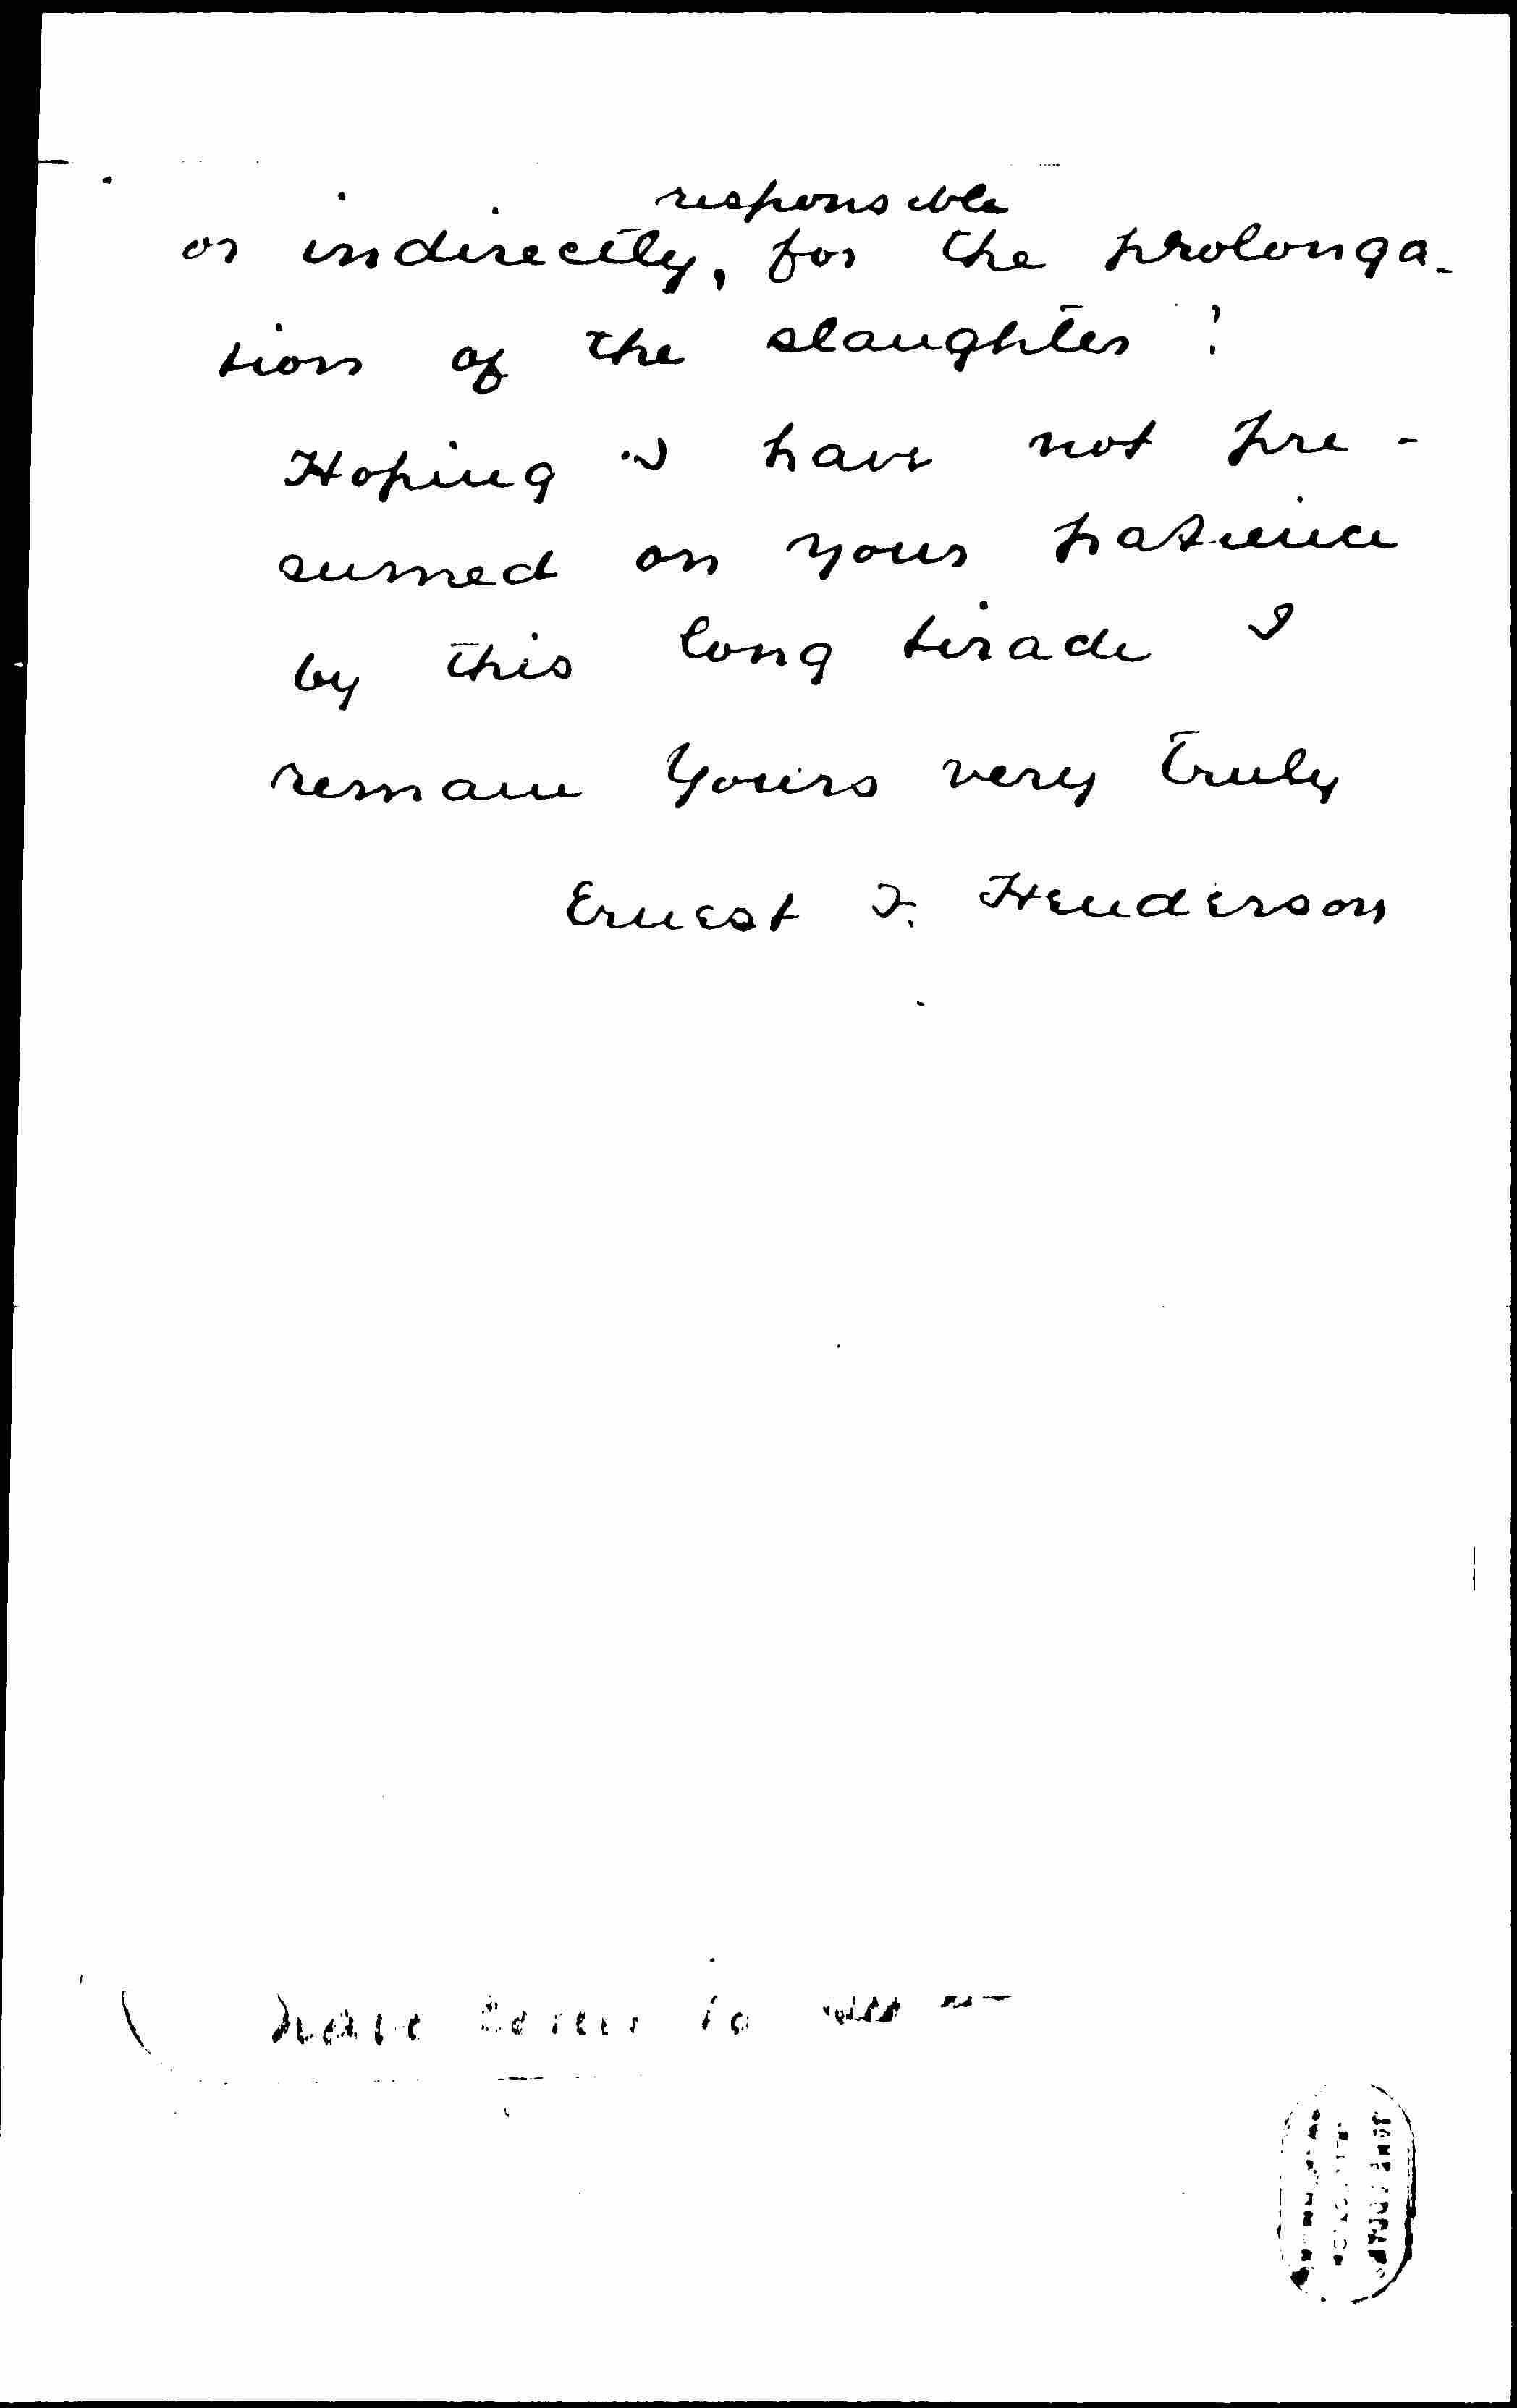 responsible
or indirectly, for the prolonga-
tion of the slaughter?
Hoping I have not pre-
sumed on your patience
by this long tirade I
remain Yours very truly
Ernest F. Henderson
have
to